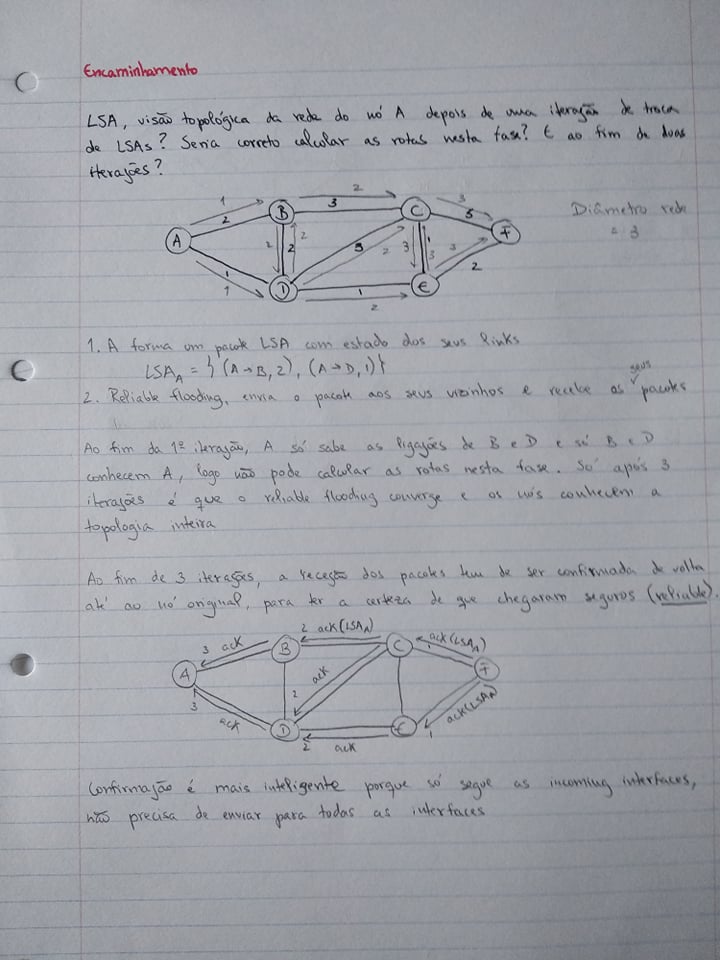 Encaminhamento
LSA, visão topológica da rede do nó A depois de uma iteração de troca
de LSAs? Seria correto calcular as rotas nesta fase? E ao fim de duas
iterações?
1 2 3
2 B 3 C 5
A 2 2 2 5 2 3 1 3 3 F
1 D 1 E 2
1 2
Diâmetro rede
= 3
1. A forma um pacote LSA com estado dos seus links
LSA_A = { (A→B, 2), (A→D, 1) }
seus
2. Reliable flooding, envia o pacote aos seus vizinhos e recebe os pacotes
Ao fim da 1ª iteração, A só sabe as ligações de B e D e só B e D
conhecem A, logo não pode calcular as rotas nesta fase. Só após 3
iterações é que o reliable flooding converge e os nós conhecem a
topologia inteira
Ao fim de 3 iterações, a receção dos pacotes tem de ser confirmada de volta
até ao nó original, para ter a certeza de que chegaram seguros (reliable).
3 ack B 2 ack(LSA_A) C 1 ack(LSA_A)
A 2 ack F
3 ack D 2 ack E 1 ack(LSA_A)
Confirmação é mais inteligente porque só segue as incoming interfaces,
não precisa de enviar para todas as interfaces